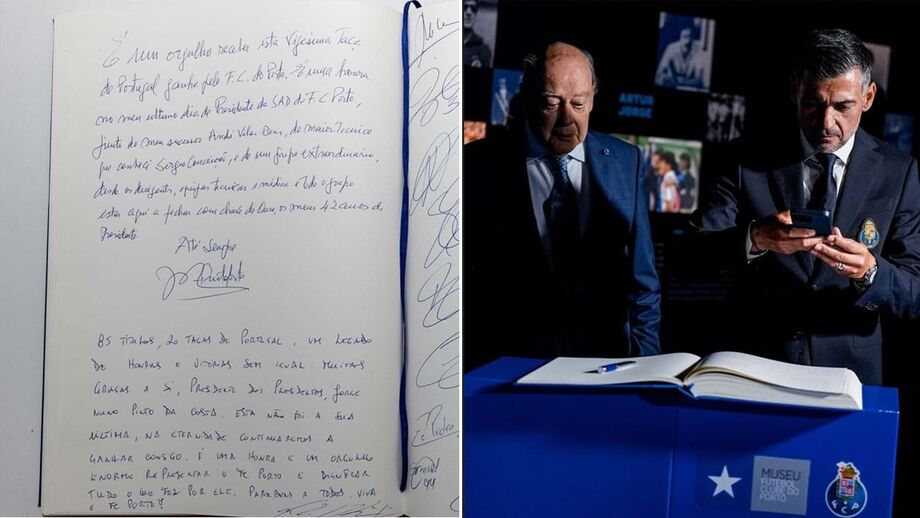 É um orgulho receber esta Vigésima Taça
de Portugal ganha pelo F.C. do Porto. É uma honra
no meu ultimo dia de Presidente da SAD do F.C Porto,
junto do meu sucessor André Villas Boas, do maior Tecnico
que conheci Sergio Conceição, e de um grupo extraordinario,
desde os dirigentes, equipas tecnicas e médica e todo o grupo
estar aqui a fechar com chave de Ouro, os meus 42 anos de
Presidente.
Até Sempre
85 TÍTULOS, 20 TAÇAS DE PORTUGAL, UM LEGADO
DE HONRAS E VITÓRIAS SEM IGUAL. MUITAS
GRAÇAS A SI, PRESIDENTE DOS PRESIDENTES, JORGE
NUNO PINTO DA COSTA. ESTA NÃO FOI A SUA
ÚLTIMA, NA ETERNIDADE CONTINUAREMOS A
GANHAR CONSIGO. É UMA HONRA E UM ORGULHO
ENORME REPRESENTAR O FC PORTO E DIGNIFICAR
TUDO O QUE FEZ POR ELE. PARABÉNS A TODOS. VIVA
O FC PORTO!
Pedro
ARTUR
JORGE
MUSEU
FUTEBOL
CLUBE DO
PORTO
FCP